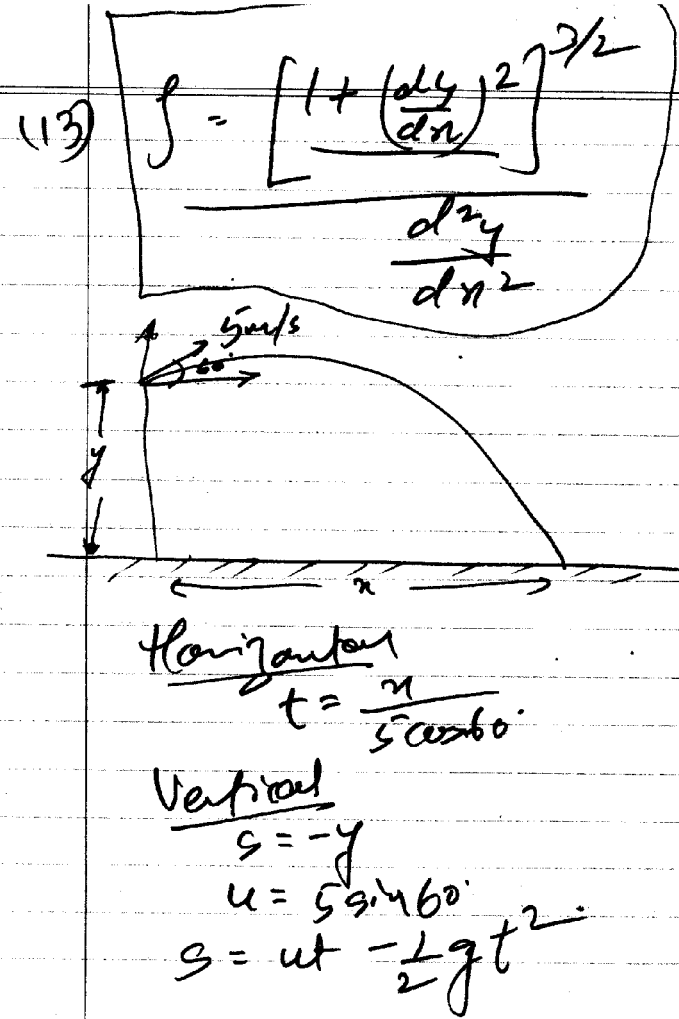 (13) ρ = [1 + (dy/dx)²]^3/2 / d²y/dx²
A
5m/s
60°
y
x
Horizontal
t = x / 5 cos60°
Vertical
s = -y
u = 5 sin60°
s = ut - 1/2 gt²